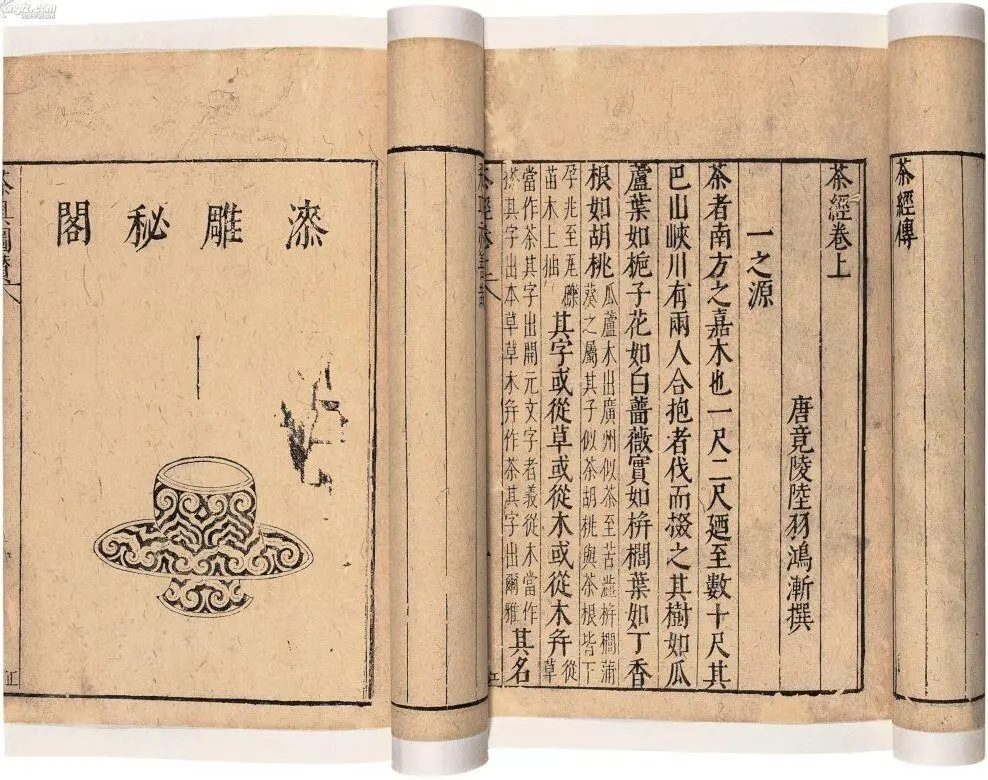 茶經傳
茶經卷上
唐竟陵陸羽鴻漸撰
一之源
茶者南方之嘉木也一尺二尺廼至數十尺其
巴山峽川有兩人合抱者伐而掇之其樹如瓜
蘆葉如梔子花如白薔薇實如栟櫚葉如丁香
根如胡桃瓜蘆木出廣州似茶至苦澁栟櫚蒲
葵之屬其子似茶胡桃與茶根皆下
孕兆至瓦礫
苗木上抽其字或從草或從木或從木并從
草
當作茶其字出開元文字者義從木當作
搽其字出本草草木弁作茶其字出爾雅其名
漆雕秘閣